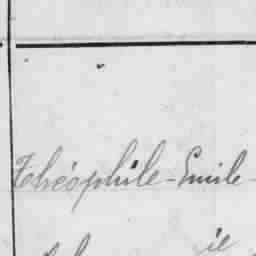 Théophile-Emile-